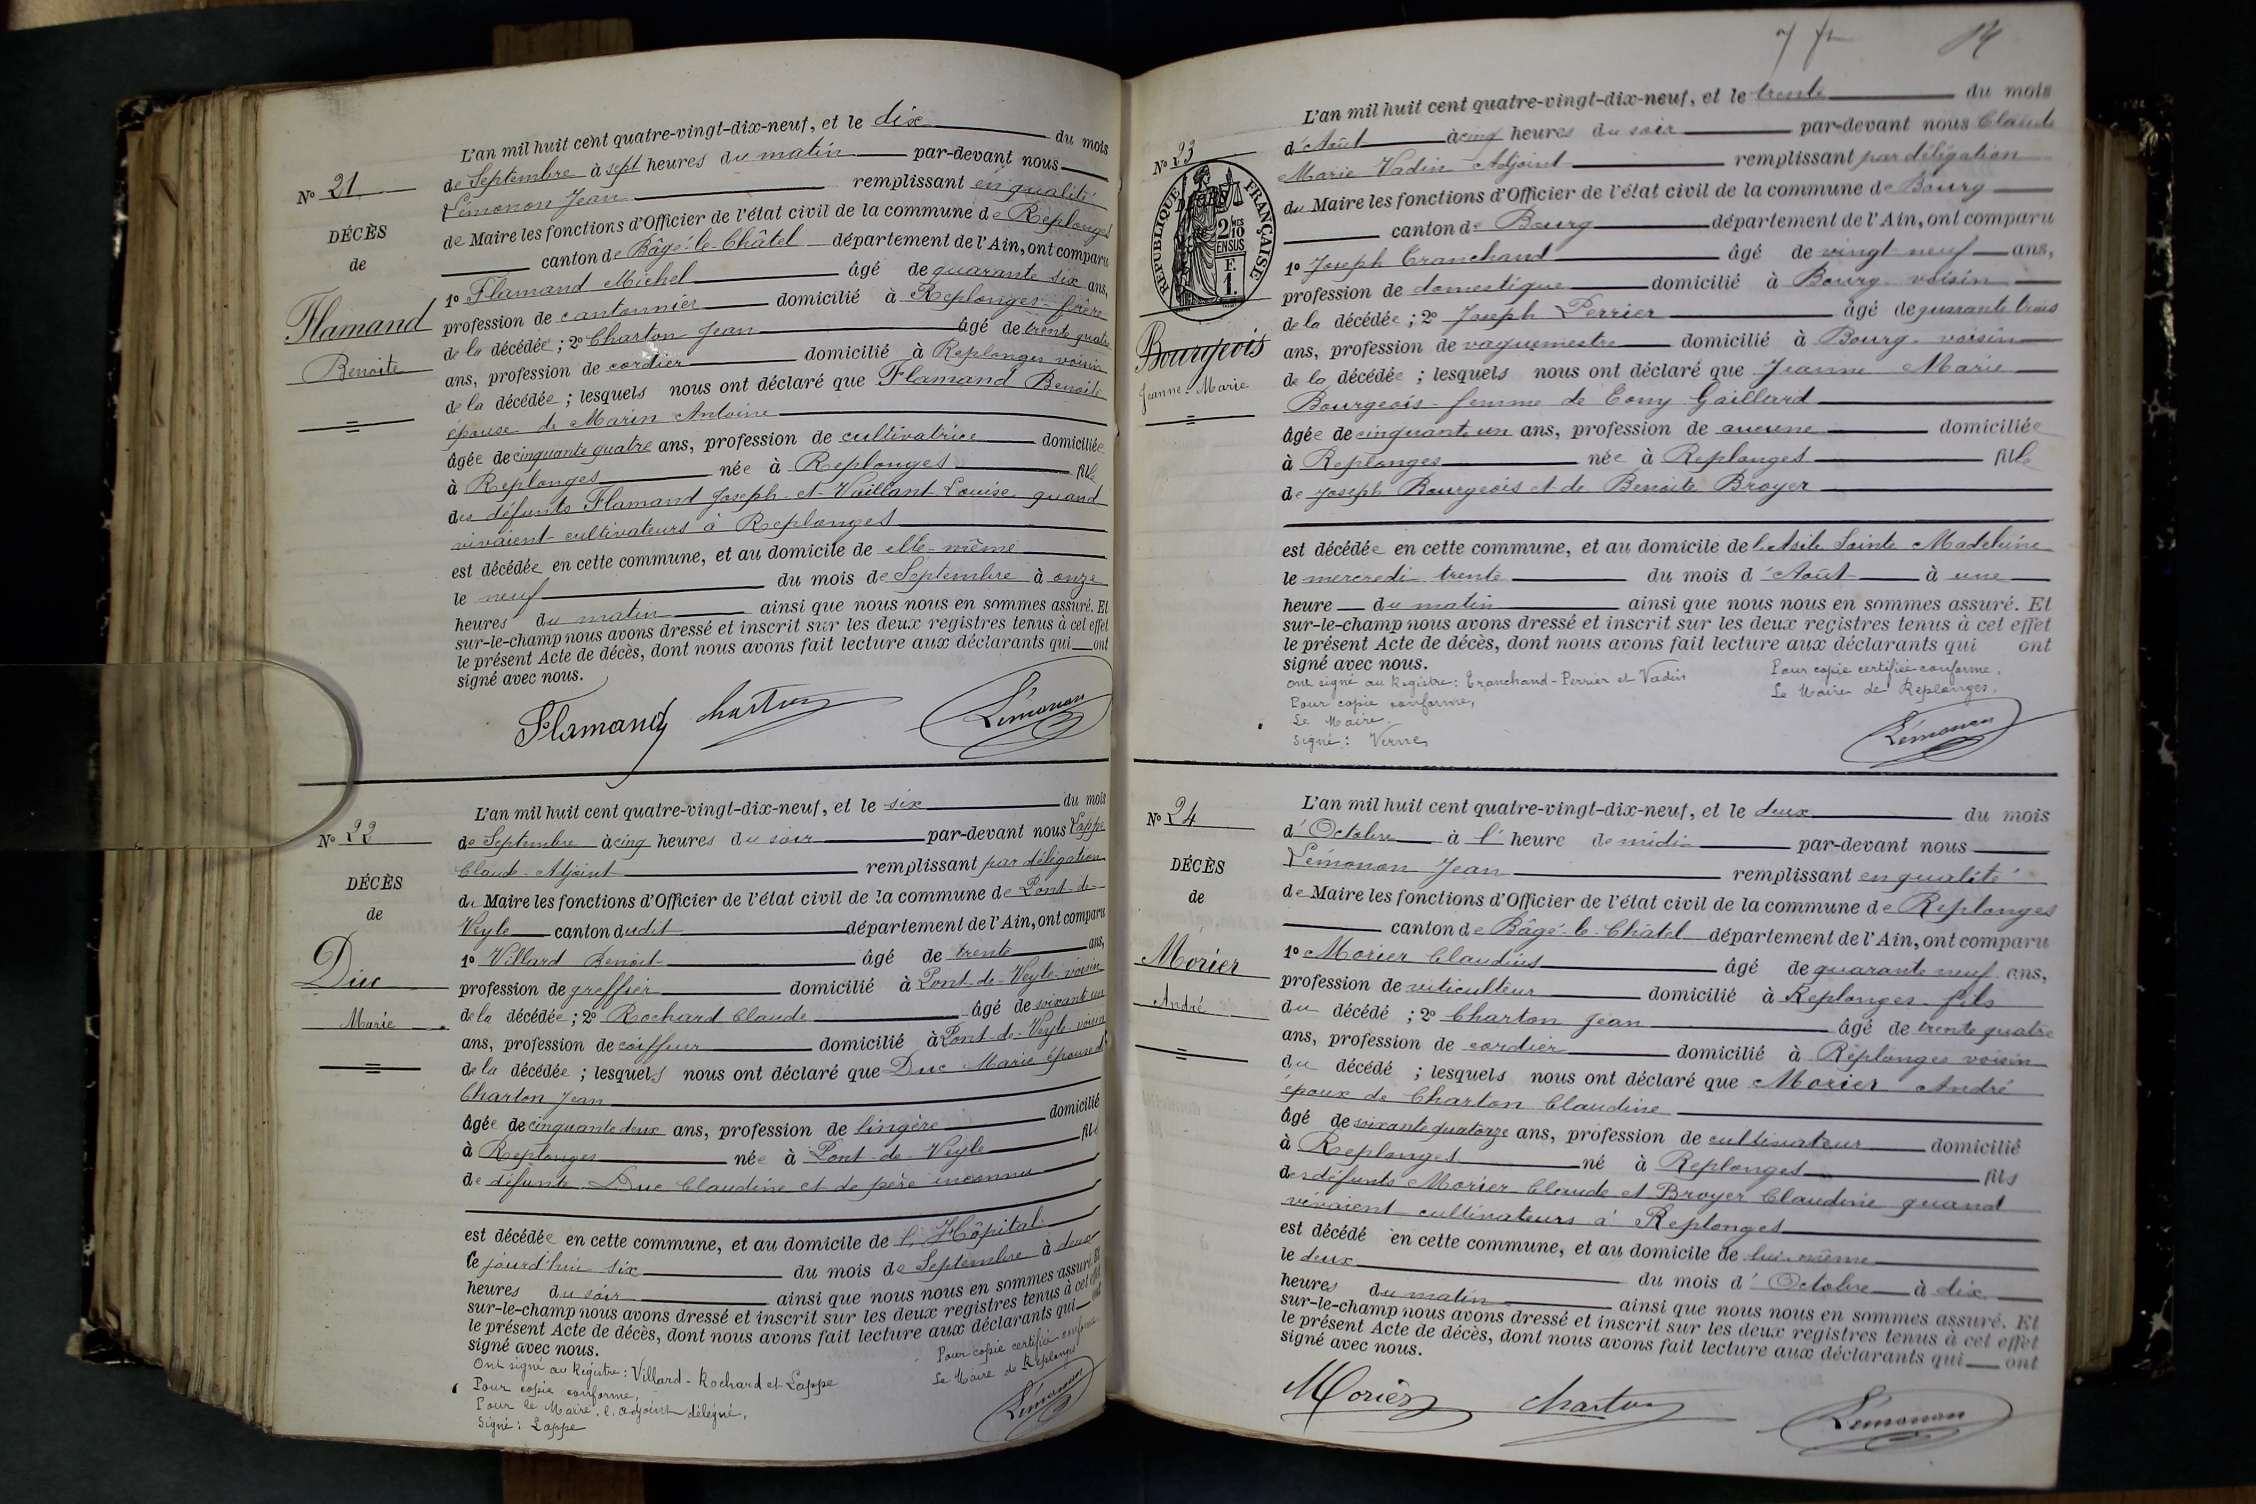 L'an mil huit cent quatre-vingt-dix-neuf, et le dix du mois
de Septembre à sept heures du matin par-devant nous
Lémonon Jean remplissant en qualité
de Maire les fonctions d'Officier de l'état civil de la commune de Replonges
canton de Bâgé-le-Châtel département de l'Ain, ont comparu
1º Flamand Michel âgé de quarante six ans,
profession de cantonnier domicilié à Replonges frère
de la décédée ; 2º Charton Jean âgé de trente quatre
ans, profession de cordier domicilié à Replonges voisin
de la décédée ; lesquels nous ont déclaré que Flamand Benoite
épouse de Marin Antoine
âgée de cinquante quatre ans, profession de cultivatrice domiciliée
à Replonges née à Replonges fille
des défunts Flamand Joseph et Vaillant Louise quand
vivaient cultivateurs à Replonges
est décédée en cette commune, et au domicile de elle-même
le neuf du mois de Septembre à onze
heures du matin ainsi que nous nous en sommes assuré. Et
sur-le-champ nous avons dressé et inscrit sur les deux registres tenus à cet effet
le présent Acte de décès, dont nous avons fait lecture aux déclarants qui ont
signé avec nous.
Nº 21
DÉCÈS
de
Flamand
Benoite
Flamand Charton Lémonon
L'an mil huit cent quatre-vingt-dix-neuf, et le six du mois
de Septembre à cinq heures du soir par-devant nous Lappe
Claude Adjoint remplissant par délégation
du Maire les fonctions d'Officier de l'état civil de la commune de Pont-de-
Veyle canton dudit département de l'Ain, ont comparu
1º Villard Benoit âgé de trente ans,
profession de greffier domicilié à Pont-de-Veyle voisin
de la décédée ; 2º Rochard Claude âgé de soixant un
ans, profession de coiffeur domicilié à Pont-de-Veyle voisin
de la décédée ; lesquels nous ont déclaré que Duc Marie épouse d
Charton Jean
âgée de cinquante deux ans, profession de lingère domicilié
à Replonges née à Pont-de-Veyle fil
de défunte Duc Claudine et de père inconnu
est décédée en cette commune, et au domicile de l'Hôpital
Ce jourd'hui six du mois de Septembre à deux
heures du soir ainsi que nous nous en sommes assuré. Et
sur-le-champ nous avons dressé et inscrit sur les deux registres tenus à cet effet
le présent Acte de décès, dont nous avons fait lecture aux déclarants qui ont
signé avec nous.
Nº 22
DÉCÈS
de
Duc
Marie
Ont signé au Registre : Villard - Rochard et Lappe
Pour copie conforme,
Pour le Maire, l'adjoint délégué,
Signé : Lappe
Pour copie certifiée conforme
Le Maire de Replonges
Lémonon
L'an mil huit cent quatre-vingt-dix-neuf, et le trente du mois
d'Août à cinq heures du soir par-devant nous Claude
Marie Vadin Adjoint remplissant par délégation
du Maire les fonctions d'Officier de l'état civil de la commune de Bourg
canton de Bourg département de l'Ain, ont comparu
1º Joseph Tranchand âgé de vingt neuf ans,
profession de domestique domicilié à Bourg voisin
de la décédée ; 2º Joseph Perrier âgé de quarante trois
ans, profession de vaguemestre domicilié à Bourg voisin
de la décédée ; lesquels nous ont déclaré que Jeanne Marie
Bourgeois femme de Tony Gaillard
âgée de cinquante un ans, profession de aucune domiciliée
à Replonges née à Replonges fille
de Joseph Bourgeois et de Benoite Broyer
est décédée en cette commune, et au domicile de l'Asile Sainte Madeleine
le mercredi trente du mois d'Août à une
heure du matin ainsi que nous nous en sommes assuré. Et
sur-le-champ nous avons dressé et inscrit sur les deux registres tenus à cet effet
le présent Acte de décès, dont nous avons fait lecture aux déclarants qui ont
signé avec nous.
Nº 23
DÉCÈS
RÉPUBLIQUE FRANÇAISE
2/10
EN SUS
F.
1.
Bourgeois
Jeanne-Marie
Ont signé au Registre : Tranchand - Perrier et Vadin
Pour copie conforme,
Le Maire
Signé : Verne
Pour copie certifiée conforme,
Le Maire de Replonges,
Lémonon
L'an mil huit cent quatre-vingt-dix-neuf, et le deux du mois
d'Octobre à l' heure de midi par-devant nous
Lémonon Jean remplissant en qualité
de Maire les fonctions d'Officier de l'état civil de la commune de Replonges
canton de Bâgé-le-Châtel département de l'Ain, ont comparu
1º Morier Claudius âgé de quarante neuf ans,
profession de viticulteur domicilié à Replonges fils
du décédé ; 2º Charton Jean âgé de trente quatre
ans, profession de cordier domicilié à Replonges voisin
du décédé ; lesquels nous ont déclaré que Morier André
époux de Charton Claudine
âgé de soixante quatorze ans, profession de cultivateur domicilié
à Replonges né à Replonges fils
des défunts Morier Claude et Broyer Claudine quand
vivaient cultivateurs à Replonges
est décédé en cette commune, et au domicile de lui-même
le deux du mois d'Octobre à dix
heures du matin ainsi que nous nous en sommes assuré. Et
sur-le-champ nous avons dressé et inscrit sur les deux registres tenus à cet effet
le présent Acte de décès, dont nous avons fait lecture aux déclarants qui ont
signé avec nous.
Nº 24
DÉCÈS
de
Morier
André
Morier Charton Lémonon